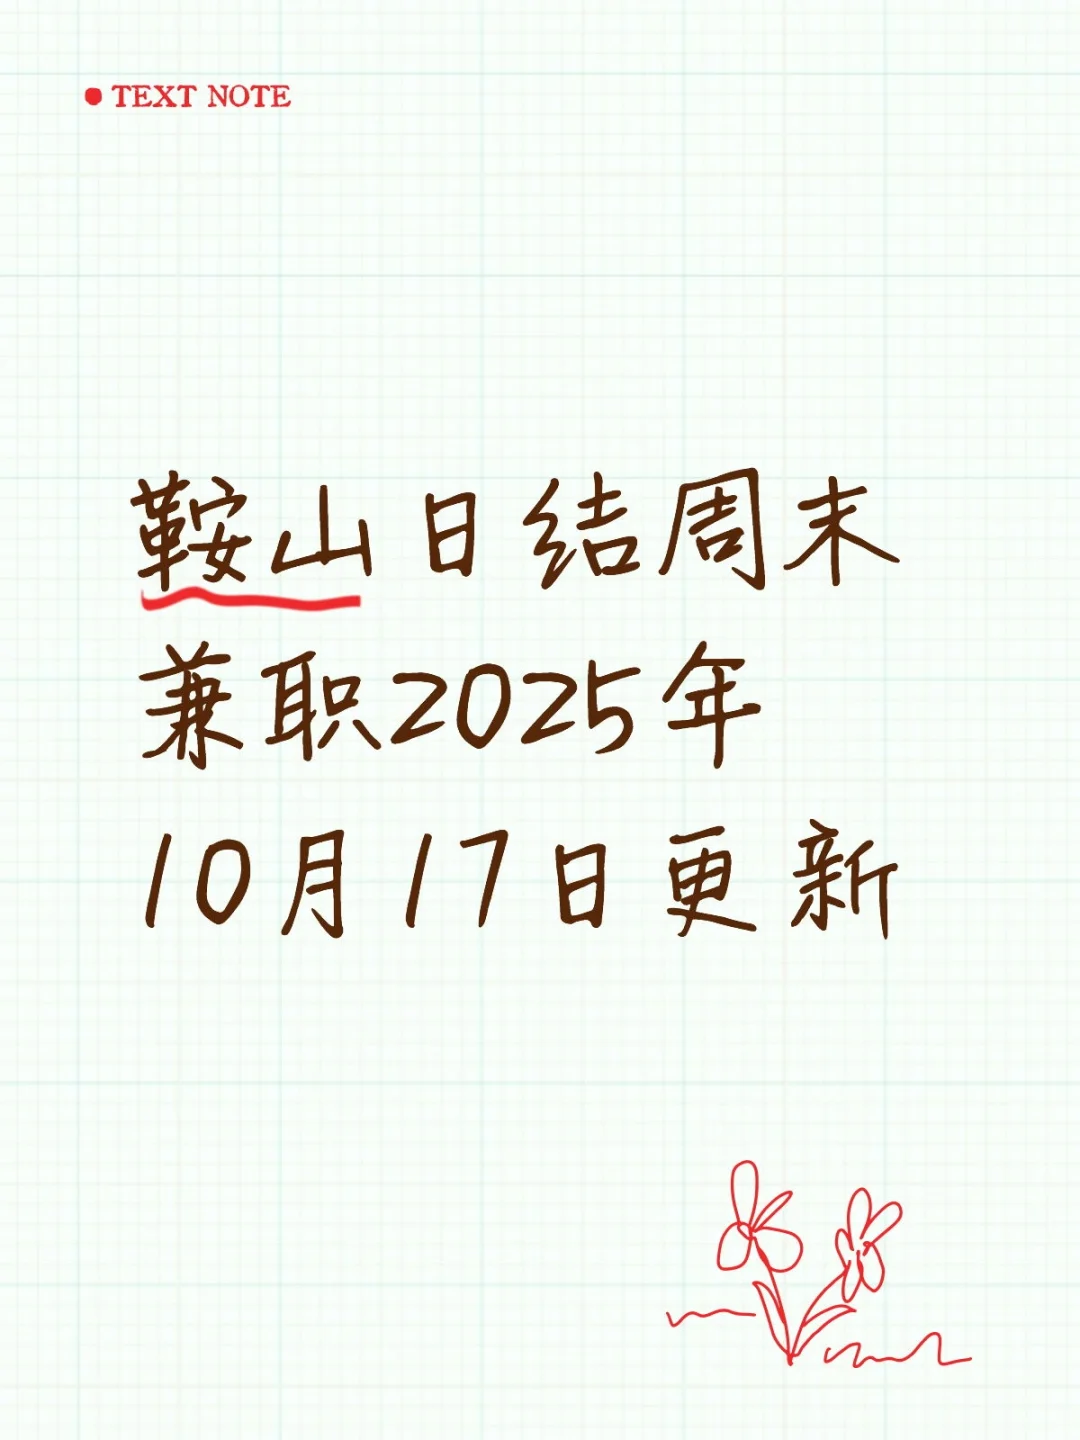 TEXT NOTE
鞍山日结周末
兼职2025年
10月17日更新